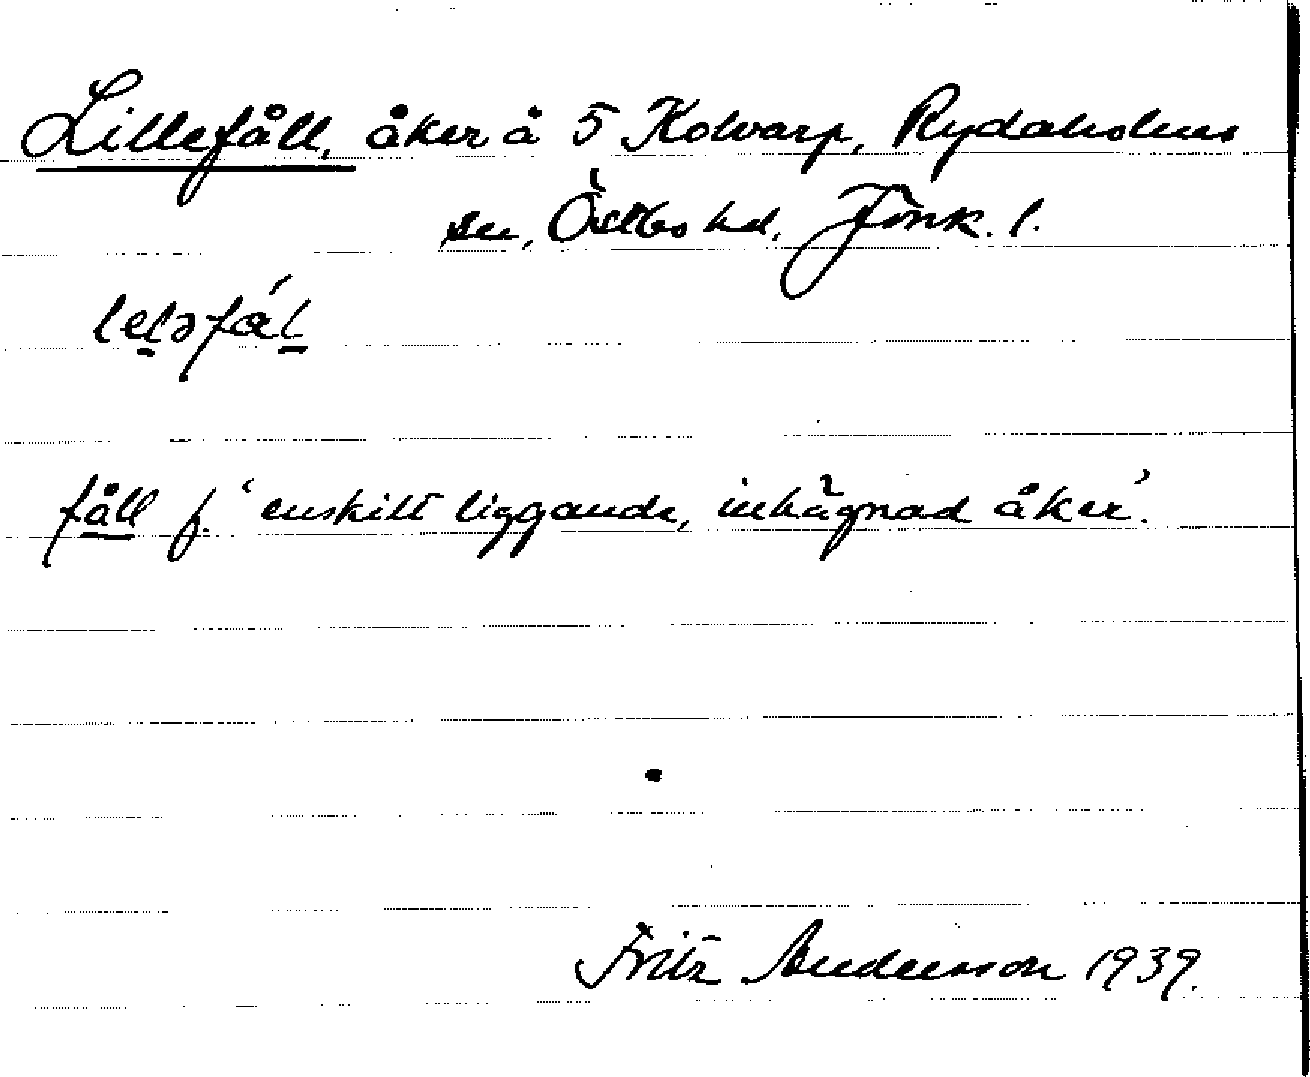 Lillefåll, åker å 5 Kolvarp, Rydaholms
sn, Östbo hd, Jönk. l.
leləfål
fåll f. 'enskilt liggande, inhägnad åker'.
Fritz Andersson 1939.